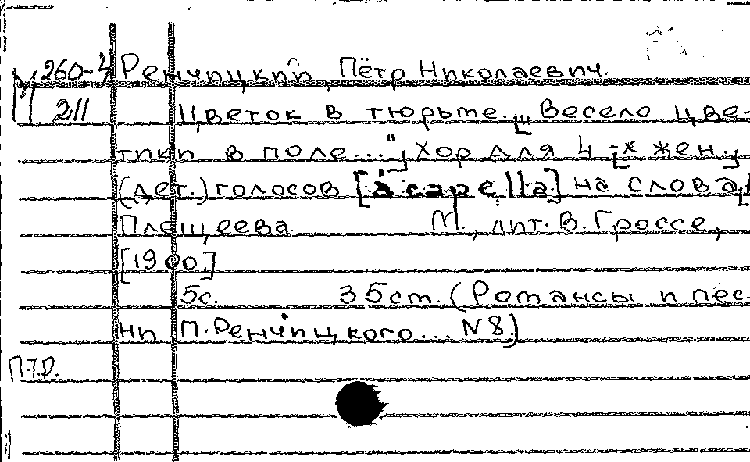 260-4 Ренчицкий, Пётр Николаевич.
211 Цветок в тюрьме. ["Весело цве-
тики в поле..."], Хор для 4-[х жен.]
(дет.) голосов [à capella] на слова
Плещеева. М., лит. В. Гроссе,
[1900]
5с. 35cm. (Романсы и пес-
ни П. Ренчицкого... N8)
П.Т.Р.